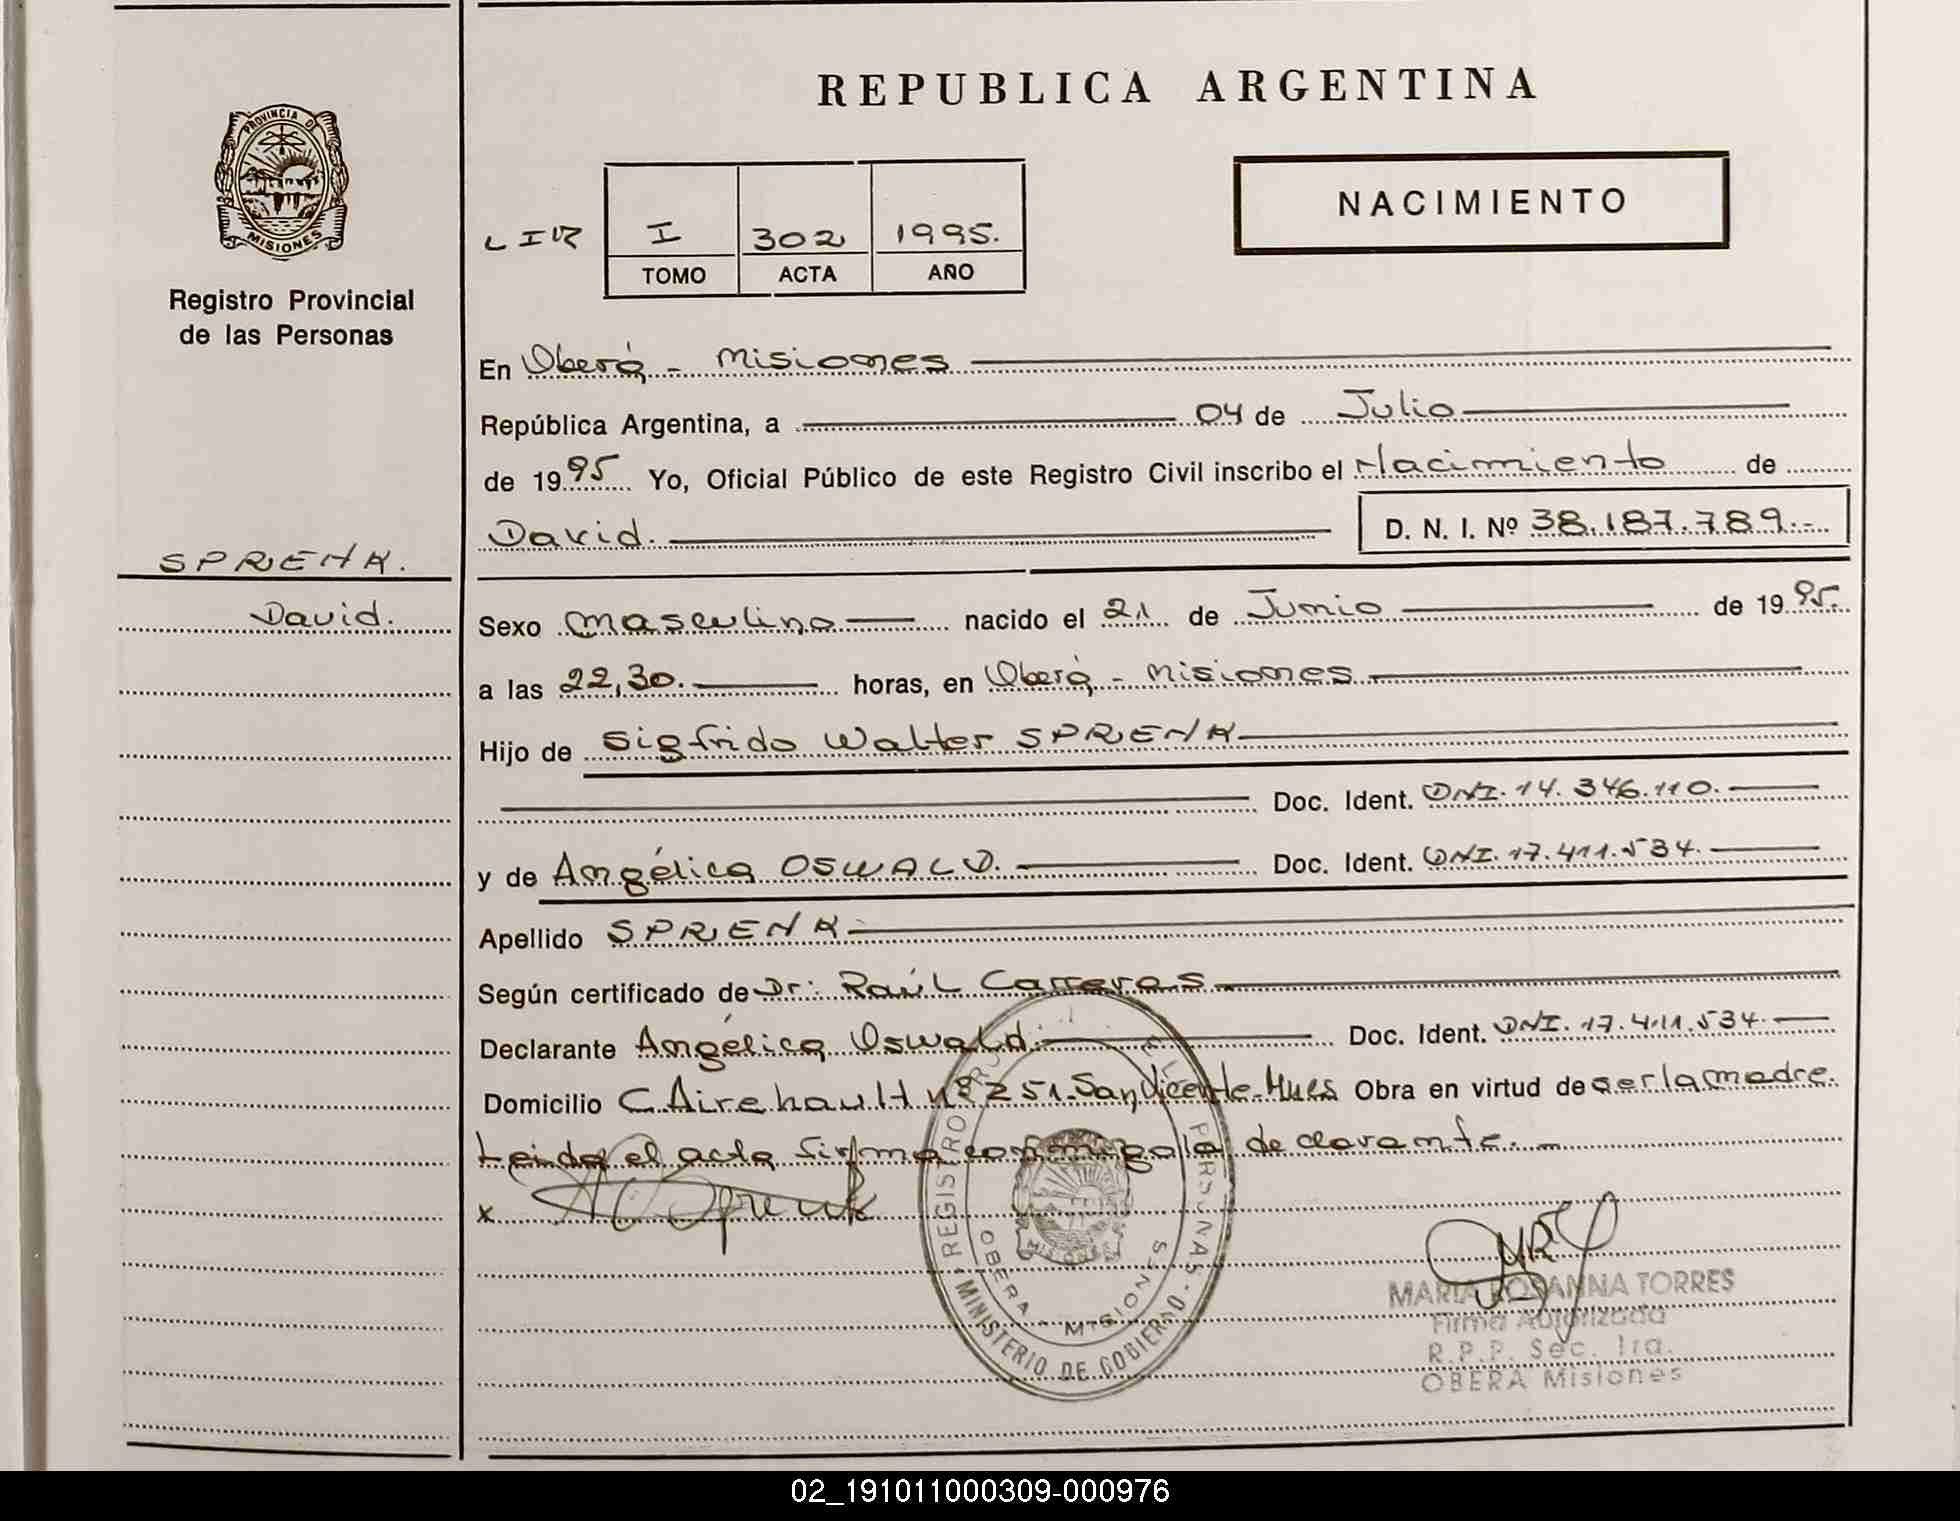 REPUBLICA ARGENTINA
PROVINCIA DE
MISIONES
Registro Provincial
de las Personas
NACIMIENTO
I 302 1995.
TOMO ACTA AÑO
En Oberá - Misiones
República Argentina, a 04 de Julio
de 1995 Yo, Oficial Público de este Registro Civil inscribo el Nacimiento de
David. D. N. I. Nº 38.187.789.-
SPRENK.
David.
Sexo masculino nacido el 21 de Junio de 1995.
a las 22,30. horas, en Oberá - Misiones
Hijo de Sigfrido Walter SPRENK
Doc. Ident. DNI. 14.346.110.
y de Angélica OSWALD. Doc. Ident. DNI. 17.411.534.
Apellido SPRENK
Según certificado de Dr: Raúl Carreras
Declarante Angélica Oswald. Doc. Ident. DNI. 17.411.534.
Domicilio C. Nº 251. San Vicente. Mnes Obra en virtud de ser la madre.
Leida el acta firma conmigo la declarante.
x
REGISTRO PERSONAS - MINISTERIO DE GOBIERNO -
OBERA - MISIONES
MISIONES
MARIA ROSANNA TORRES
Firma Autorizada
R.P.P. Sec. 1ra.
OBERA Misiones
02_191011000309-000976